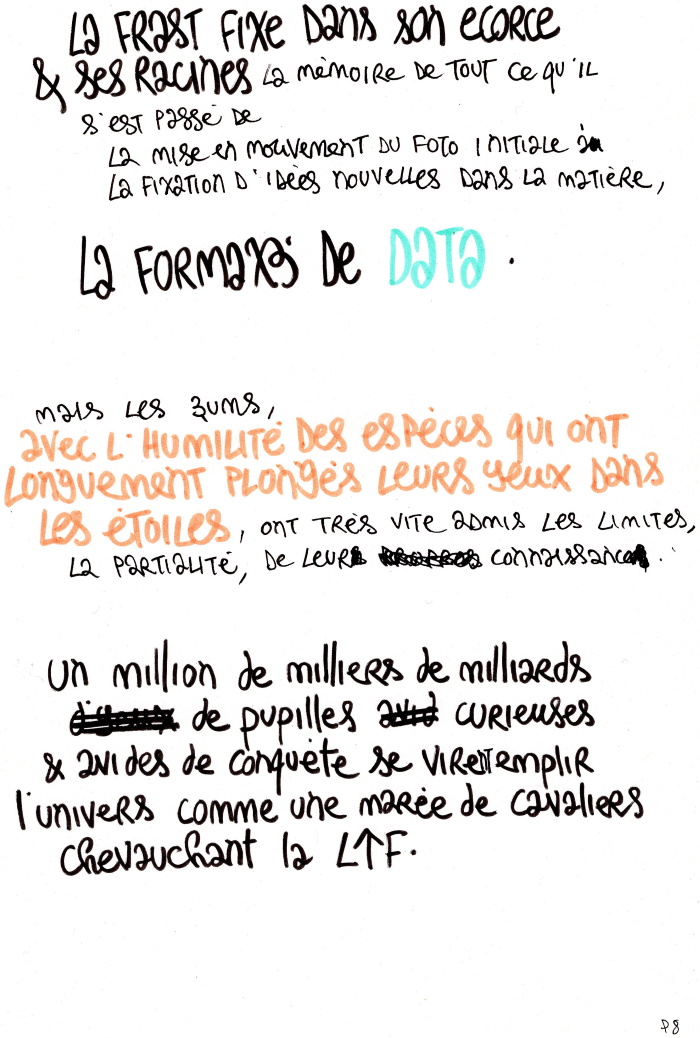 La FRAST FIXE Dans son ECORCE
& ses Racines La mémoire de tout ce qu'il
s'est passé de
La mise en mouvement du foto initiale à
La fixation d'idées nouvelles dans la matière,
La de DATA.
mais les zums,
avec l'humilité des espèces qui ont
longuement plongés leurs yeux dans
les étoiles, ont très vite admis les limites,
la partialité, de leur connaissance.
un million de milliers de milliards
de pupilles curieuses
& avides de conquète se virent emplir
l'univers comme une marée de cavaliers
chevauchant la L↑F.
P8